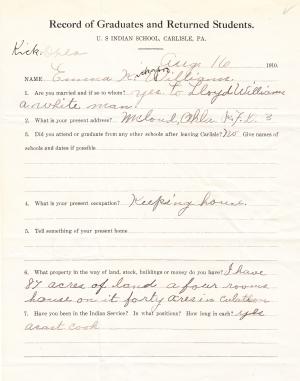 Record of Graduates and Returned Students.
U. S INDIAN SCHOOL, CARLISLE, PA.
Kick. Okla
Aug 16 1910.
NAME Emma K. Williams
1. Are you married and if so to whom? yes to Lloyd Williams
a white man
2. What is your present address? McLoud, Okla R.F.D. 3
3. Did you attend or graduate from any other schools after leaving Carlisle? No Give names of
schools and dates if possible
4. What is your present occupation? Keeping house.
5. Tell something of your present home
6. What property in the way of land, stock, buildings or money do you have? I have
87 acres of land a four rooms
house on it forty acres in
7. Have you been in the Indian Service? In what positions? How long in each? yes
asast cook